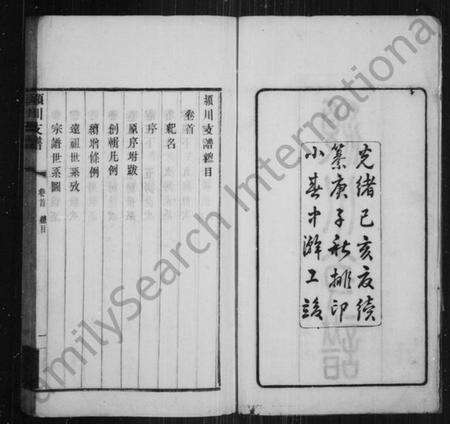 光緒己亥夏續
纂庚子秋排印
小春中澣工竣
穎川支譜總目
卷首
譜名
序
原序附跋
創輯凡例
續增條例
遠祖世系攷
宗譜世系圖
穎川支譜
卷首 總目
一
FamilySearch International